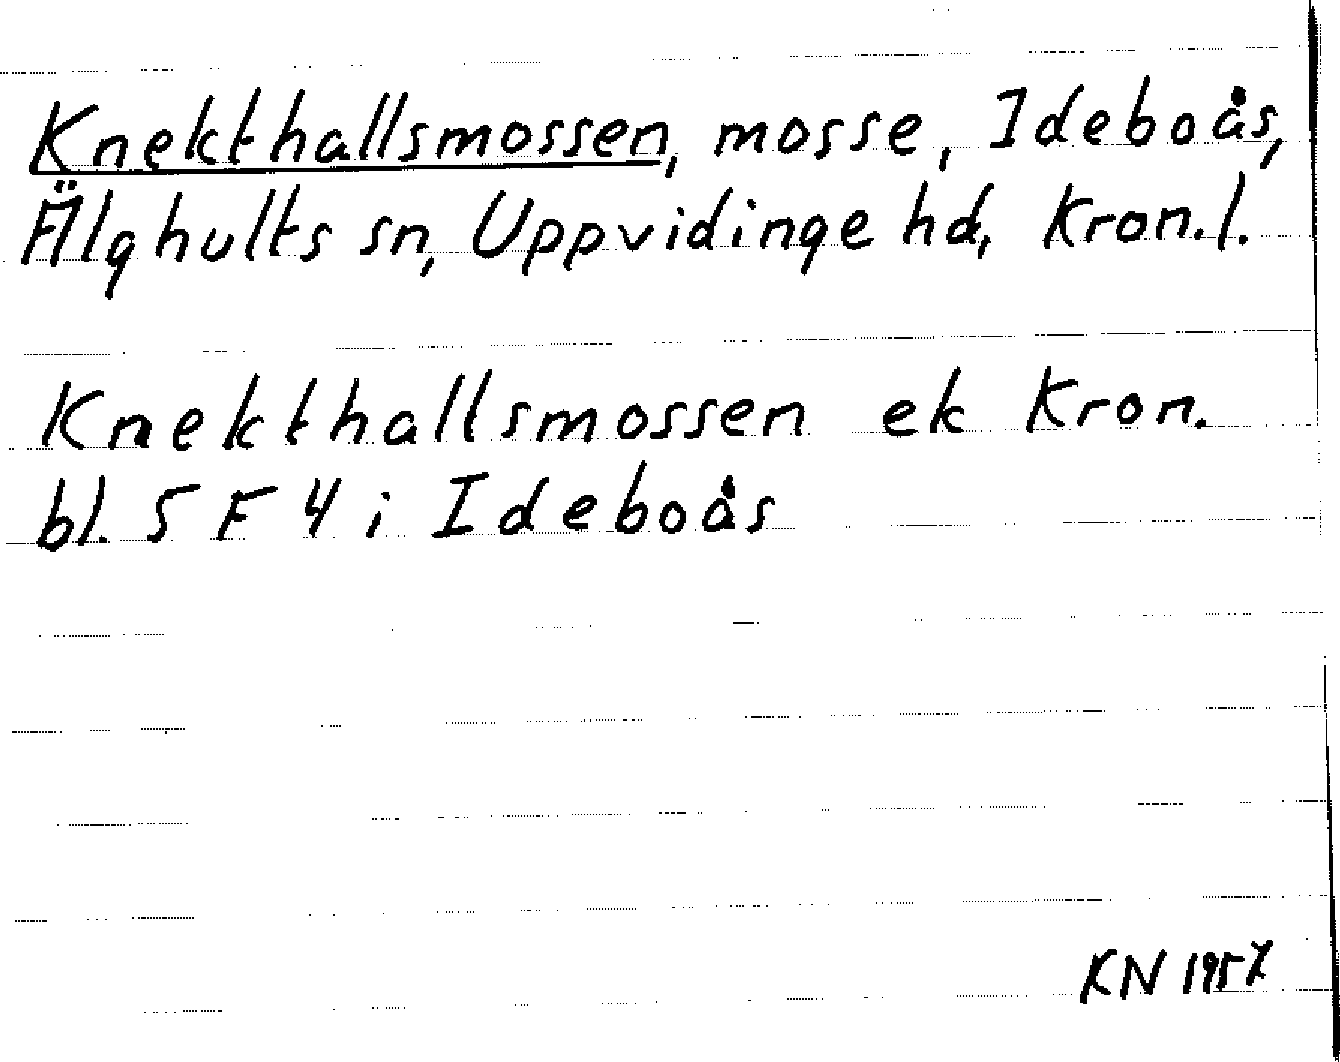 Knekthallsmossen, mosse, Ideboås,
Älghults sn, Uppvidinge hd, Kron.l.
Knekthallsmossen ek Kron.
bl. 5 F 4 i Ideboås
KN 1957